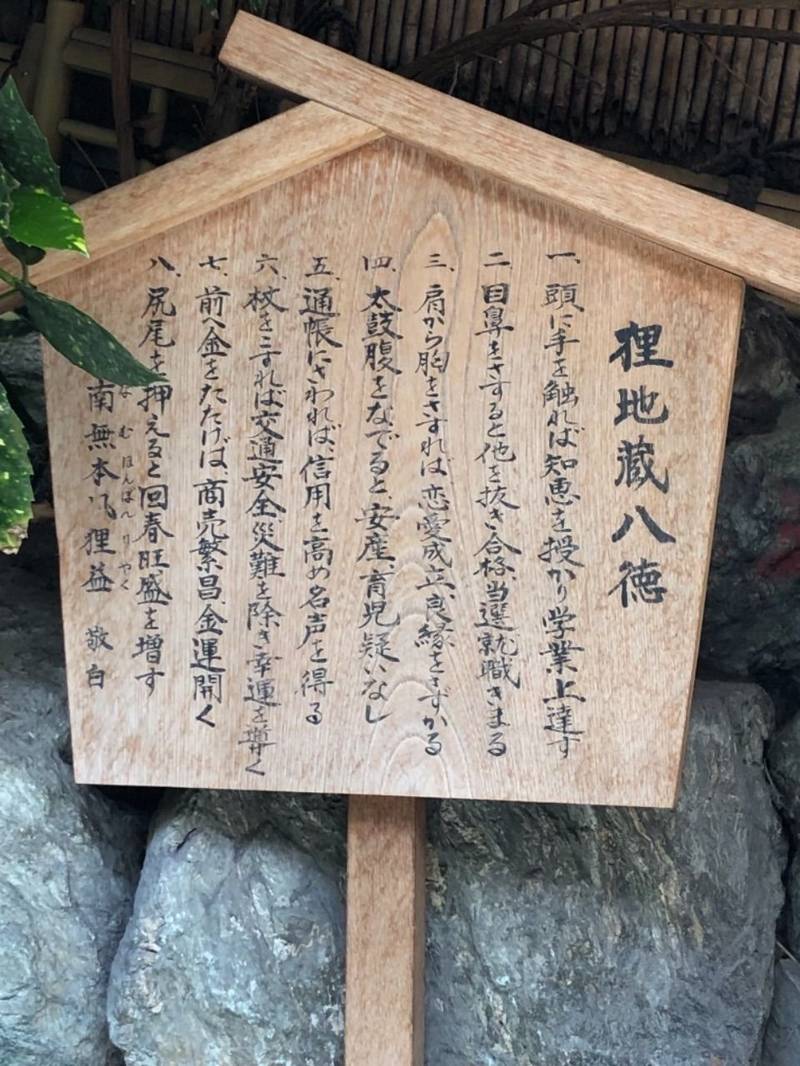 狸地蔵八徳
一、頭に手を触れば知恵を授かり学業上達す
二、目鼻をさすると他を抜き合格、当選、就職きまる
三、肩から胸をさすれば、恋愛成立、良縁をさずかる
四、太鼓腹をなでると、安産、育児疑いなし
五、通帳にさわれば、信用を高め名声を得る
六、杖をこすれば交通安全、災難を除き幸運を導く
七、前へ金をたたげば、商売繁昌、金運開く
八、尻尾を押えると回春旺盛を増す
なむほんぽんりやく
南無本凡狸益 敬白